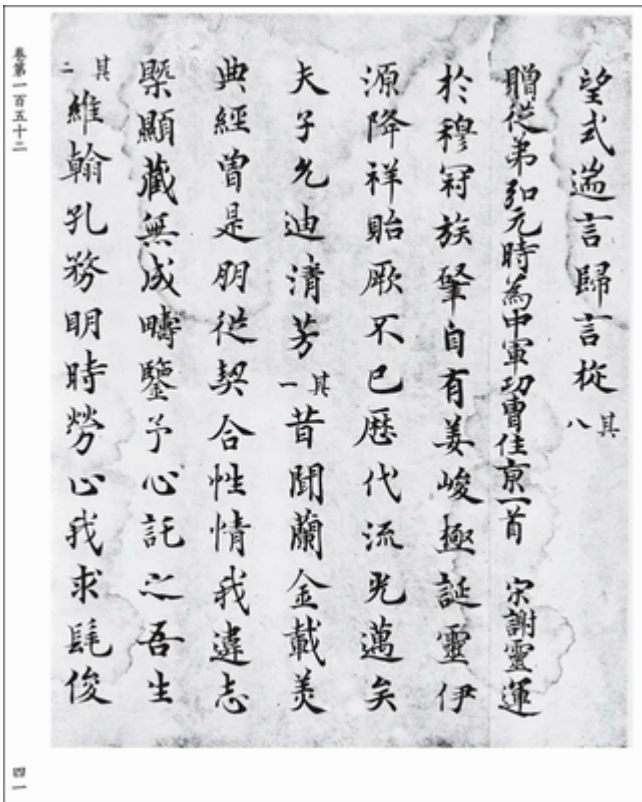 望式遄言歸言樅其八
贈從弟弘元時為中軍功曹住京一首 宋謝靈運
於穆冠族肇自有姜峻極誕靈伊
源降祥貽厥不已歷代流光邁矣
夫子允迪清芳其一昔聞蘭金載美
典經曾是朋從契合性情我違志
槩顯藏無成疇鑒予心託之吾生
其二維翰孔務明時勞心我求髦俊
卷第一百五十二
四一